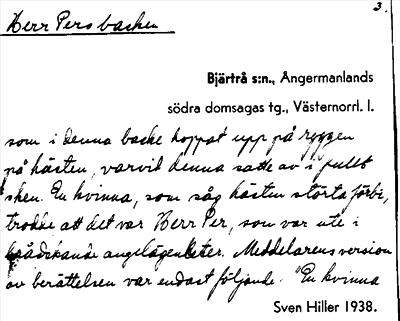 3.
Herr Persbacken
Bjärtrå s:n., Ångermanlands
södra domsagas tg., Västernorrl. l.
som i denna backe hoppat upp på ryggen
på hästen, varvid denna satte av i fullt
sken. En kvinna, som såg hästen störta förbi,
trodde att det var Herr Per, som var ute i
brådskande angelägenheter. Meddelarens version
av berättelsen var endast följande. "En kvinna
Sven Hiller 1938.